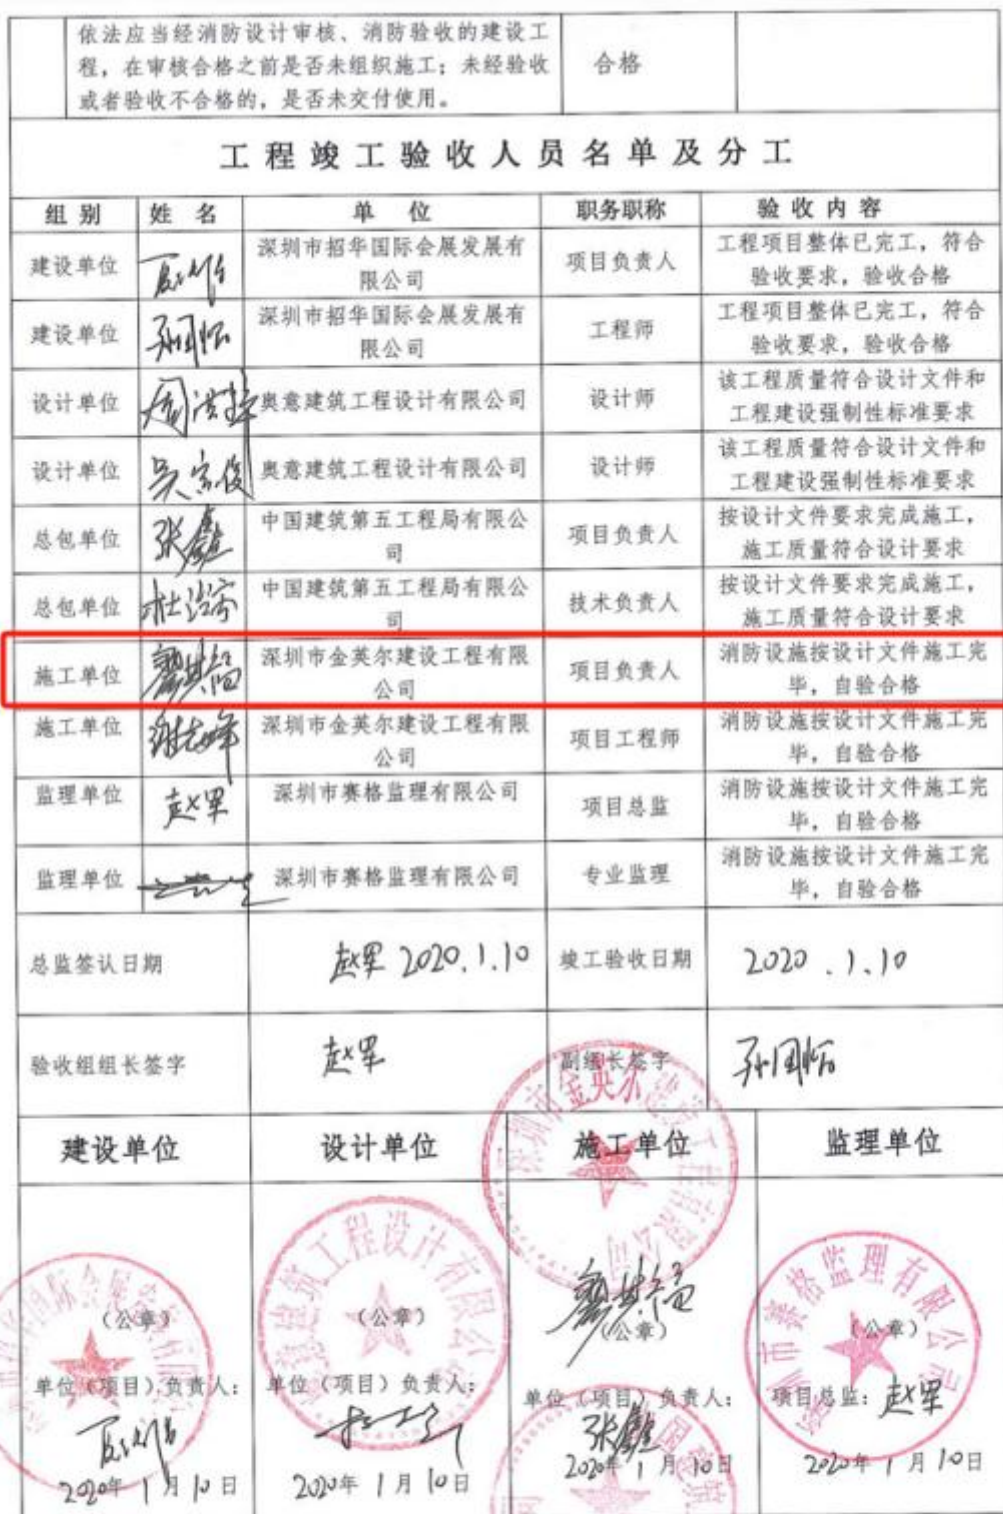 依法应当经消防设计审核、消防验收的建设工
程，在审核合格之前是否未组织施工；未经验收
或者验收不合格的，是否未交付使用。
合格
工程竣工验收人员名单及分工
组别 姓名 单位 职务职称 验收内容
建设单位 深圳市招华国际会展发展有
限公司 项目负责人 工程项目整体已完工，符合
验收要求，验收合格
建设单位 孙国怀 深圳市招华国际会展发展有
限公司 工程师 工程项目整体已完工，符合
验收要求，验收合格
设计单位 奥意建筑工程设计有限公司 设计师 该工程质量符合设计文件和
工程建设强制性标准要求
设计单位 吴宗俊 奥意建筑工程设计有限公司 设计师 该工程质量符合设计文件和
工程建设强制性标准要求
总包单位 张鑫 中国建筑第五工程局有限公
司 项目负责人 按设计文件要求完成施工，
施工质量符合设计要求
总包单位 中国建筑第五工程局有限公
司 技术负责人 按设计文件要求完成施工，
施工质量符合设计要求
施工单位 深圳市金英尔建设工程有限
公司 项目负责人 消防设施按设计文件施工完
毕，自验合格
施工单位 谢志峰 深圳市金英尔建设工程有限
公司 项目工程师 消防设施按设计文件施工完
毕，自验合格
监理单位 赵军 深圳市赛格监理有限公司 项目总监 消防设施按设计文件施工完
毕，自验合格
监理单位 深圳市赛格监理有限公司 专业监理 消防设施按设计文件施工完
毕，自验合格
总监签认日期 赵军 2020.1.10 竣工验收日期 2020.1.10
验收组组长签字 赵军 副组长签字 孙国怀
建设单位 设计单位 施工单位 监理单位
深圳市金英尔建设工程有限公司
建筑工程设计有限公
市赛格监理有限公司
（公章） （公章） （公章） （公章）
单位（项目）负责人： 单位（项目）负责人： 单位（项目）负责人： 项目总监：赵军
张鑫
2020年1月10日 2020年1月10日 2020年1月10日 2020年1月10日